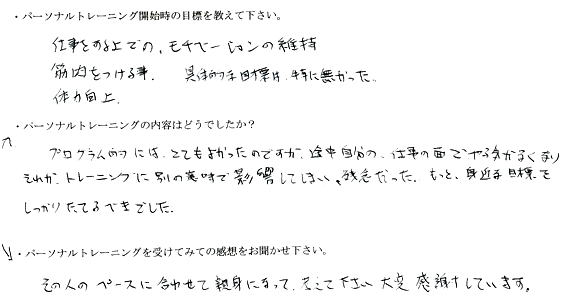 ・パーソナルトレーニング開始時の目標を教えて下さい。
仕事をする上での、モチベーションの維持
筋肉をつける事. 具体的な目標は、特に無かった。
体力向上.
・パーソナルトレーニングの内容はどうでしたか？
プログラム的には、とてもよかったのですが、途中自分の、仕事の面でやる気がなくなり
それが、トレーニングに別の意味で影響してしまい、残念だった。もっと、身近な目標を
しっかりたてるべきでした.
・パーソナルトレーニングを受けてみての感想をお聞かせ下さい。
その人のペースに合わせて親身になって、考えて下さい大変感謝しています。